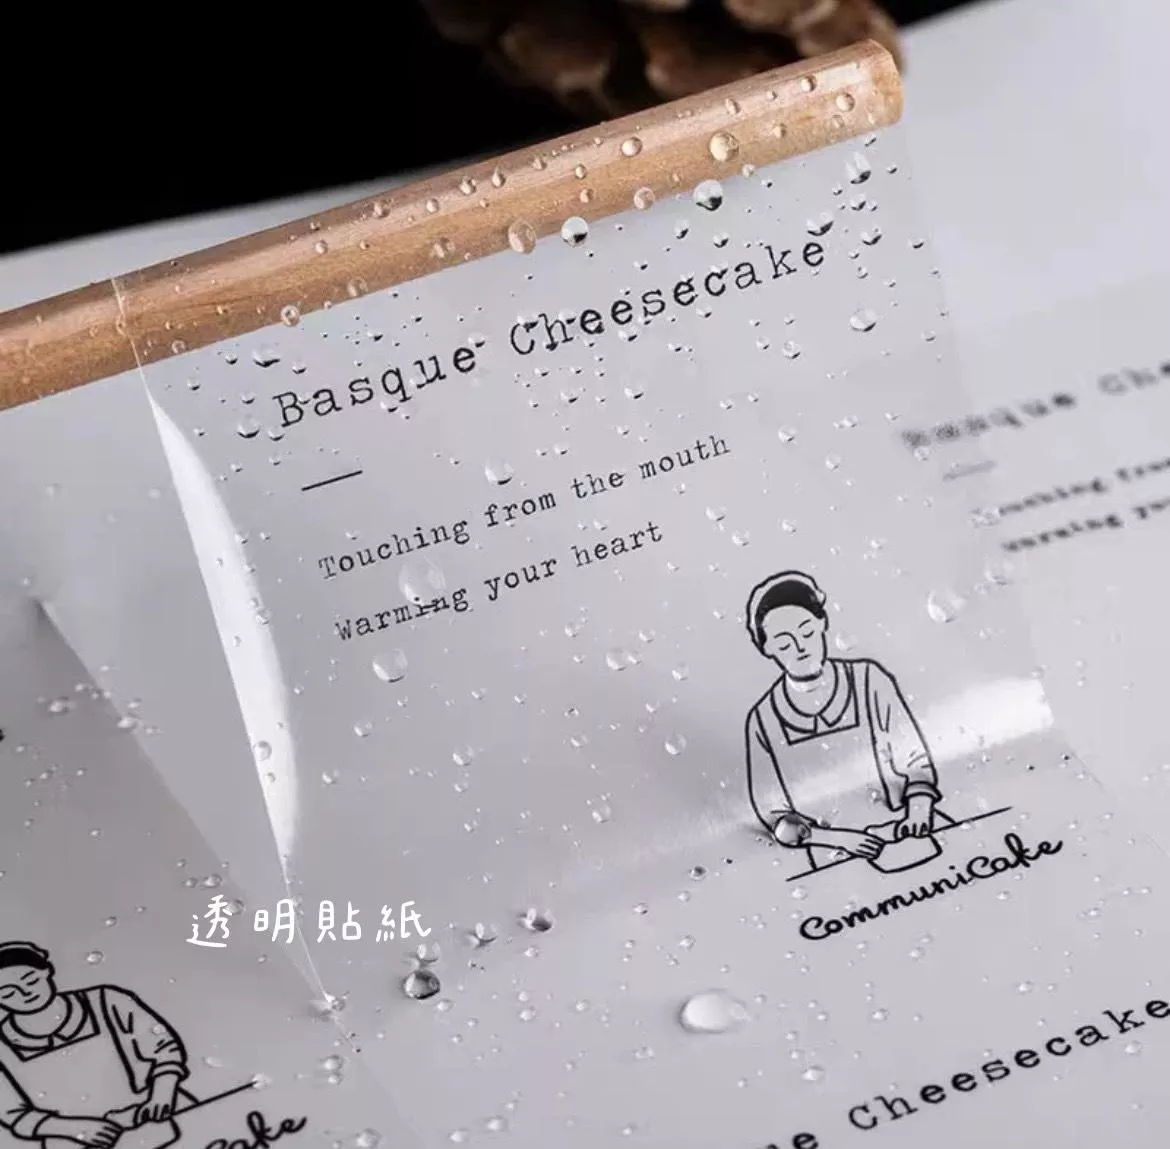 Basque Cheesecake
Touching from the mouth
warming your heart
CommuniCake
透明貼紙
Basque Che
Touching from
warming yo
Cheesecake
Cake